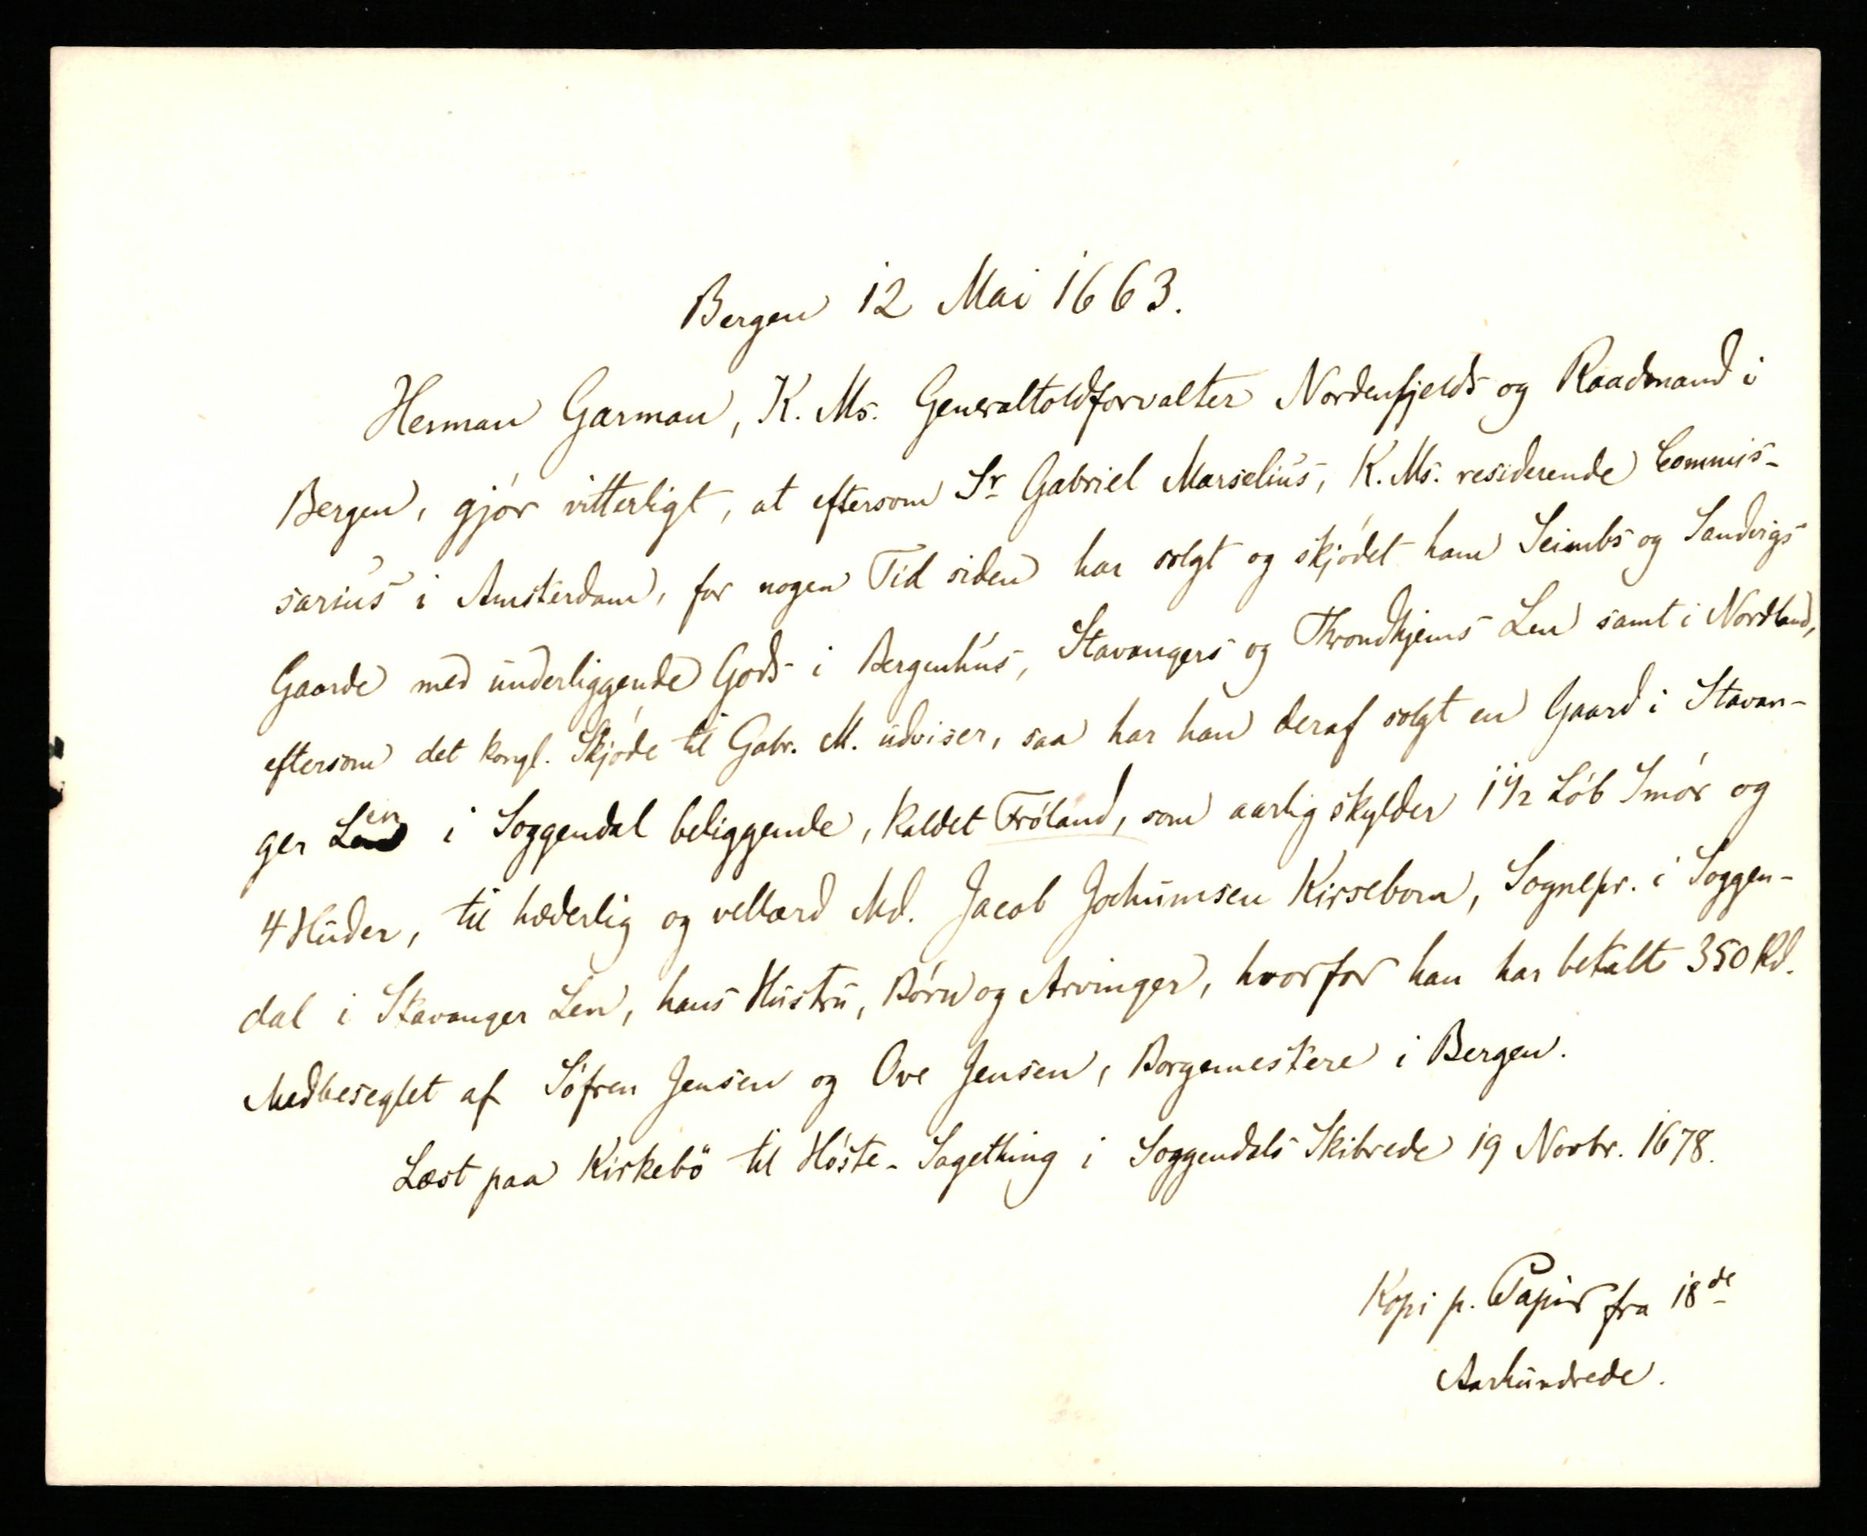 Bergen 12 Mai 1663.
Herman Garman, K. Ms. Generaltoldforvalter Nordenfjelds og Raadmand i
Bergen, gjör vitterligt, at eftersom Sr Gabriel Marselius, K. Ms. residerende Commis-
sarius i Amsterdam, for nogen Tid siden har solgt og skjödet ham Seimbs og Sandvigs
Gaarde med underliggende Gods i Bergenhus, Stavangers og Throndhjems Len samt i Nordland,
eftersom det kongl. Skjöde til Gabr. M. udviser, saa har han deraf solgt en Gaard i Stavan-
ger Len i Soggendal beliggende, kaldet Fröland, som aarlig skylder 1 1/2 Löb Smör og
4 Huder, til hæderlig og vellærd Md. Jacob Jochumsen Kirsebom, Sognepr. i Soggen-
dal i Stavanger Len, hans Hustru, Börn og Arvinger, hvorfor han har betalt 350 Rd.
Medbeseglet af Söfren Jensen og Ove Jensen, Borgemestere i Bergen.
Læst paa Kirkebö til Höste-Sagething i Soggendals Skibrede 19 Novbr. 1678.
Kopi p. Papir fra 18de
Aarhundrede.